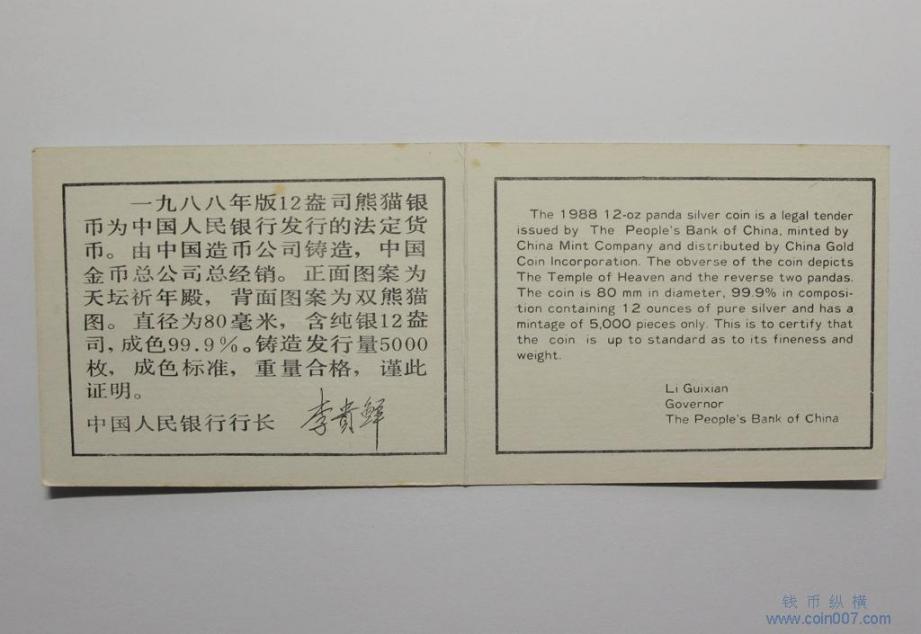 一九八八年版12盎司熊猫银
币为中国人民银行发行的法定货
币。由中国造币公司铸造，中国
金币总公司总经销。正面图案为
天坛祈年殿，背面图案为双熊猫
图。直径为80毫米，含纯银12盎
司，成色99.9%。铸造发行量5000
枚，成色标准，重量合格，谨此
证明。
中国人民银行行长 李贵鲜
The 1988 12-oz panda silver coin is a legal tender
issued by The People's Bank of China, minted by
China Mint Company and distributed by China Gold
Coin Incorporation. The obverse of the coin depicts
The Temple of Heaven and the reverse two pandas.
The coin is 80 mm in diameter, 99.9% in composi-
tion containing 12 ounces of pure silver and has a
mintage of 5,000 pieces only. This is to certify that
the coin is up to standard as to its fineness and
weight.
Li Guixian
Governor
The People's Bank of China
钱币纵横
www.coin007.com